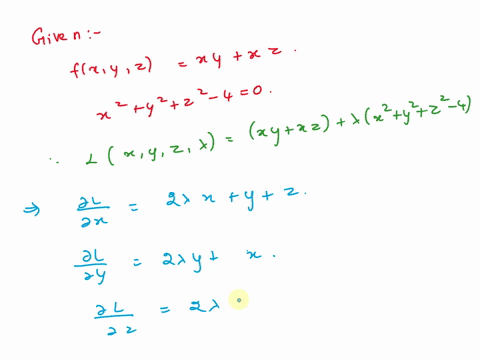 Given :-
f(x, y, z) = xy + xz .
x² + y² + z² - 4 = 0.
∴ L ( x, y, z, λ ) = (xy + xz) + λ(x² + y² + z² - 4)
⇒ ∂L/∂x = 2λ x + y + z .
∂L/∂y = 2λ y + x .
∂L/∂z = 2λ